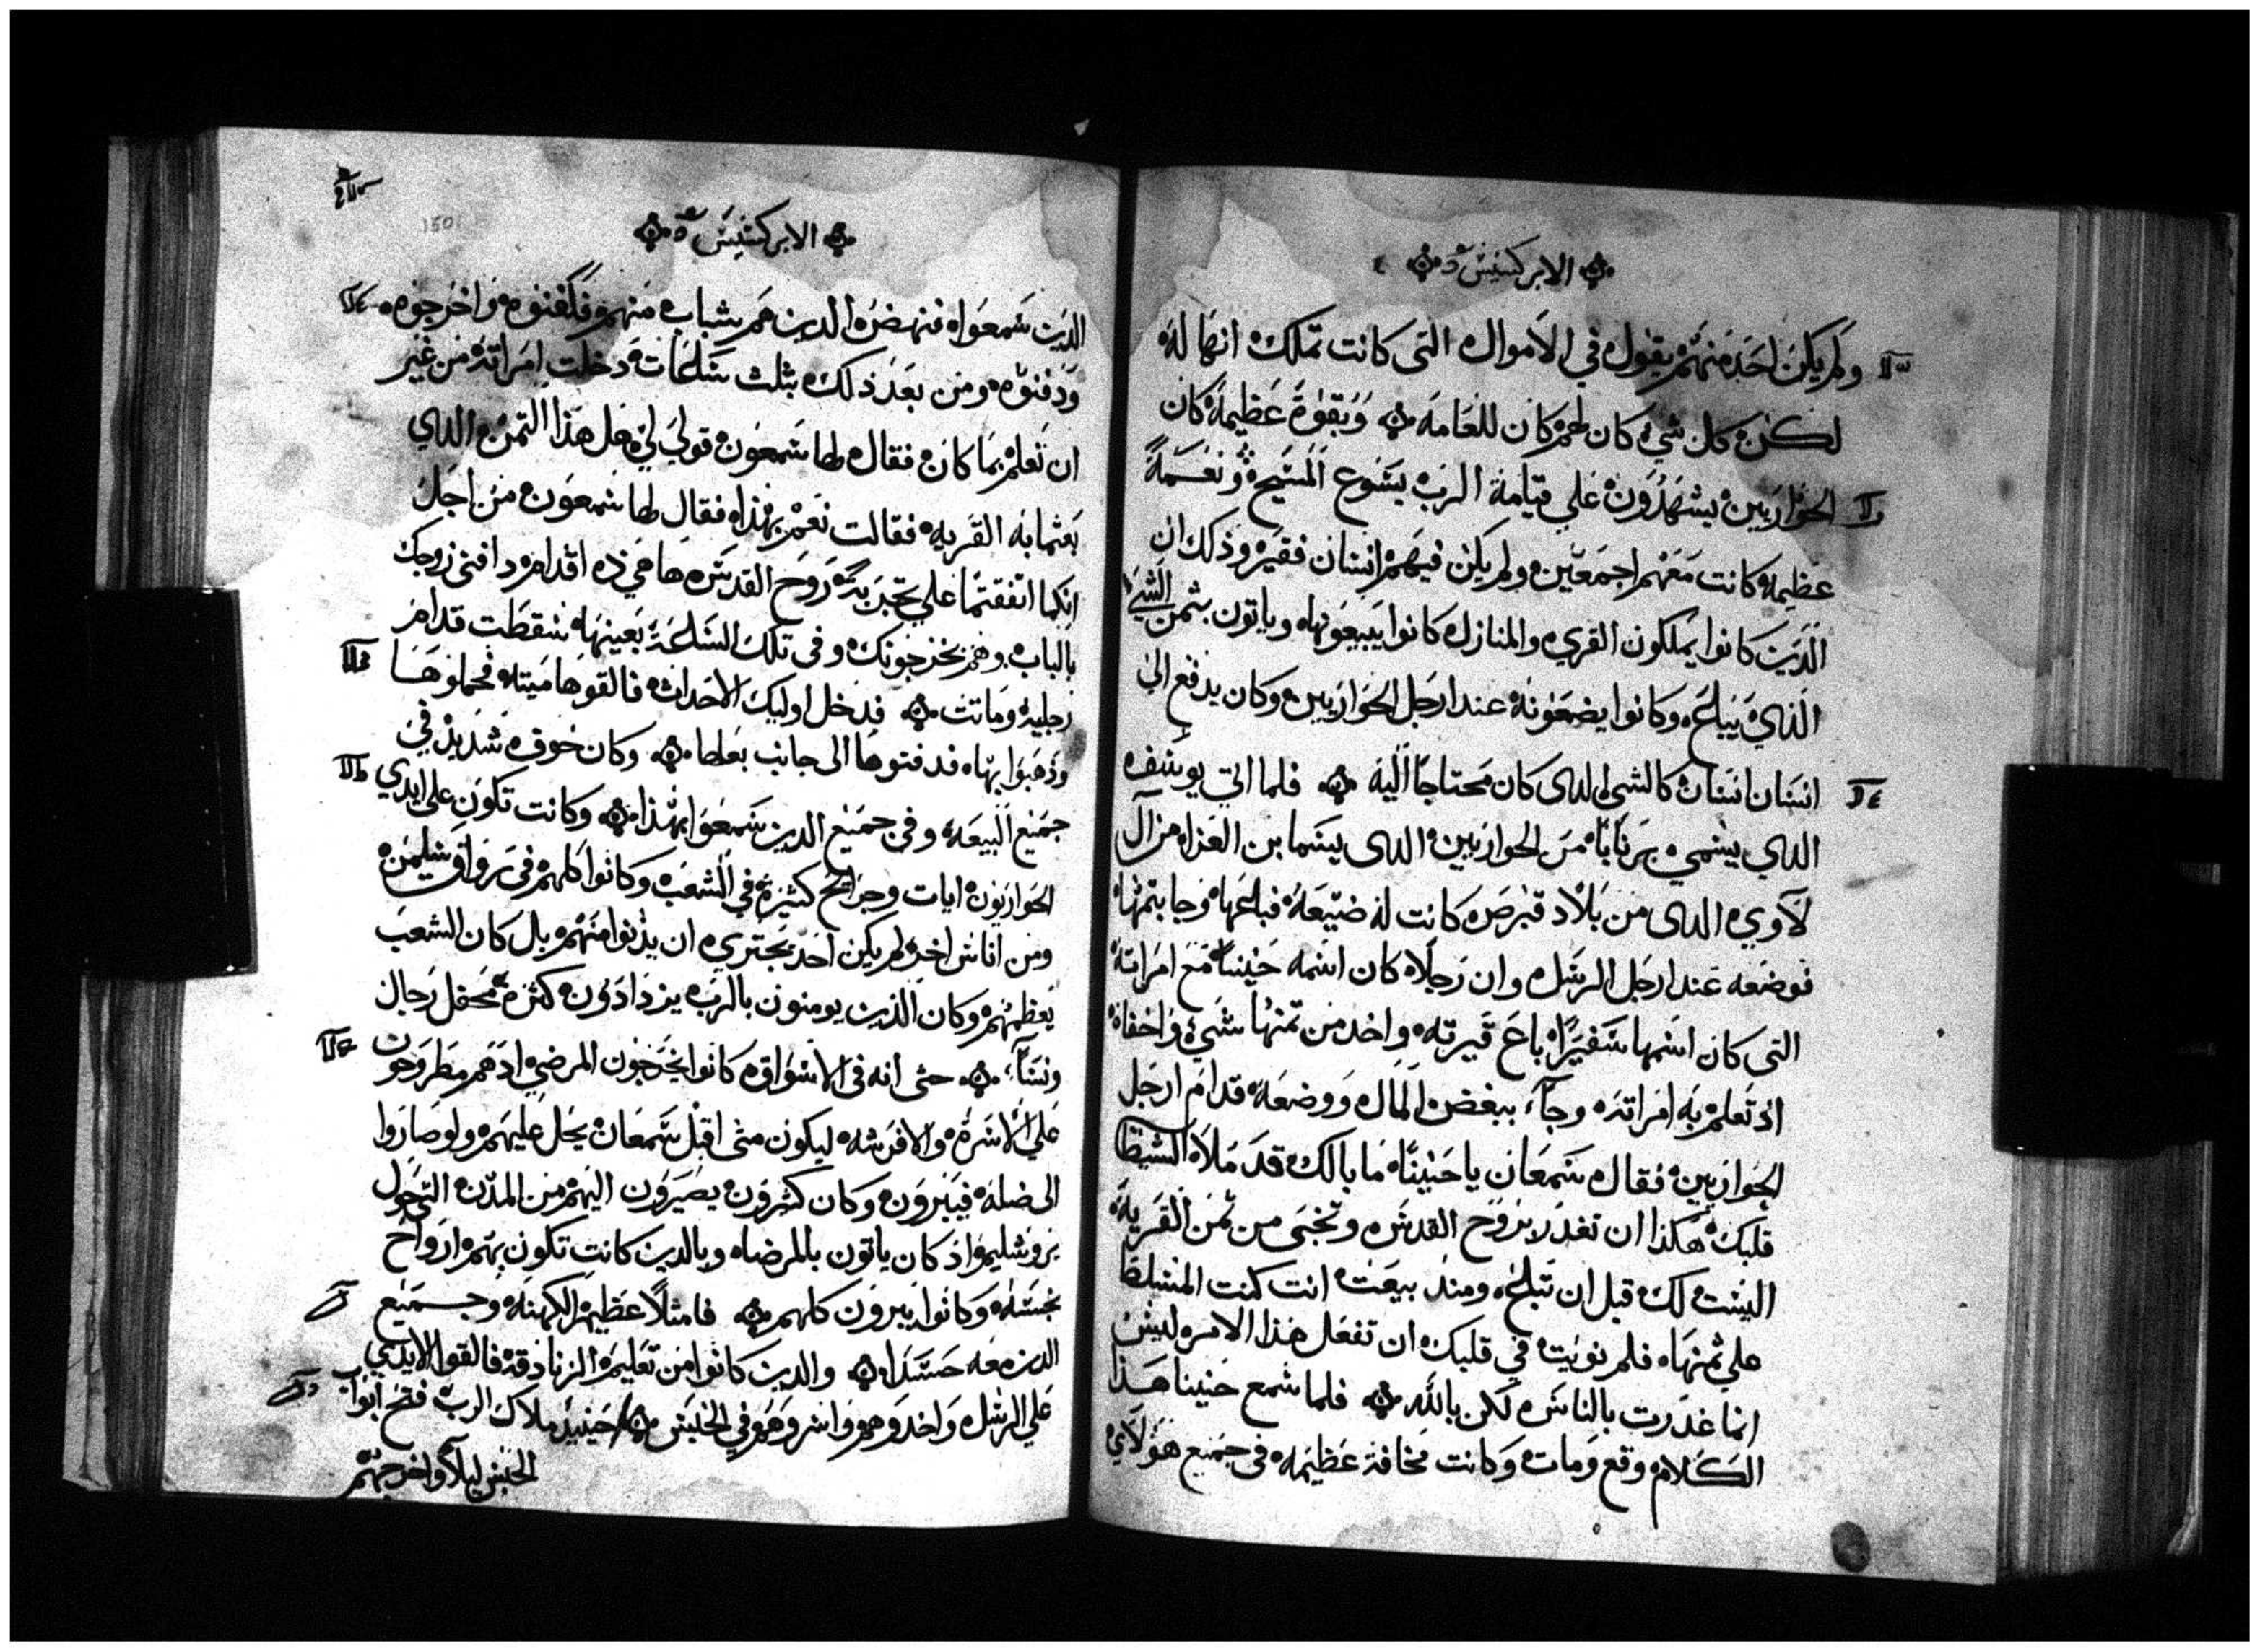 الابركسيس
ولم يكن احد منهم يقول في الاموال التى كانت تملك انها له
لكن كل شي كان لهم كان للعامه وبقوة عظيمة كان
الحواريين يشهدون على قيامة الرب يسوع المسيح ونعمة
عظيمه كانت معهم اجمعين ولم يكن فيهم انسان فقير وذلك ان
الدين كانوا يملكون القري والمنازل كانوا يبيعونها وياتون بثمن الشي
الذي يباع وكانوا يضعونه عند ارجل الحواريين وكان يدفع الى
انسان انسان كالشي الدى كان محتاجا اليه فلما اتي يوسف
الدي يسمي برنابا من الحواريين الدى يسما بن العزا من ال
لاوي الدى من بلاد قبرص كانت له ضيعة فباعها وجا بتمنها
فوضعه عند ارجل الرسل وان رجلا كان اسمه حنينا مع امراته
التى كان اسمها سفيرا باع قريته واخد من تمنها شي واخفاه
اذ تعلم به امراته وجآ ببعض المال ووضعه قدام ارجل
الحواريين فقال سمعان يا حنينا ما بالك قد ملا الشيطا
قلبك هكذا ان تغدر بروح القدس وتخبى من ثمن القريه
اليست لك قبل ان تباع ومند بيعت انت كنت المسلط
على ثمنها فلم نويت في قلبك ان تفعل هذا الامر ليس
انما غدرت بالناس لكن بالله فلما سمع حنينا هذا
الكلام وقع ومات وكانت مخافة عظيمه فى جميع هولاي
الابركسيس
150
الدين سمعوا فنهض الدين هم شباب منهم فكفنوه واخرجوه
ودفنوه ومن بعد ذلك بثلث ساعات دخلت امراته من غير
ان تعلم بما كان فقال لها سمعون قولي لي هل هذا التمن الدي
بعتما به القريه فقالت نعم بهذا فقال لها سمعون من اجل
انكما اتفقتما على تجربة روح القدس ها هي ذه اقدام دافنى زوجك
بالباب وهم يخرجونك وفى تلك الساعة بعينها سقطت قدام
رجليه وماتت فدخل اوليك الاحداث فالقوها ميته فحملوها
وذهبوا بها فدفنوها الى جانب بعلها وكان خوف شديد في
جميع البيعه وفى جميع الدين سمعوا بهذا وكانت تكون على ايدي
الحواريون ايات وجرايح كثيرة في الشعب وكانوا كلهم فى رواق سليمن
ومن اناس اخر لم يكن احد يجتري ان يدنوا منهم بل كان الشعب
يعظمهم وكان الذين يومنون بالرب يزدادون كثرة محفل رجال
ونسآ حتى انه فى الاسواق كانوا يخرجون المرضي اذ هم مطروحون
على الاسرة والافرشه ليكون متى اقبل سمعان يحل عليهم ولو صاروا
الى ضله فيبرون وكان كثيرون يصيرون اليهم من المدن التى حول
يروشليم اذ كان ياتون بالمرضا وبالدين كانت تكون بهم ارواح
نجسه وكانوا يبرون كلهم فامتلا عظيم الكهنه وجميع
الدين معه حسدا والدين كانوا من تعليم الزنادقة فالقوا الايدي
على الرسل واخدوهم واسروهم في الحبس حينيد ملاك الرب فتح ابواب
الحبس ليلا واخرجهم